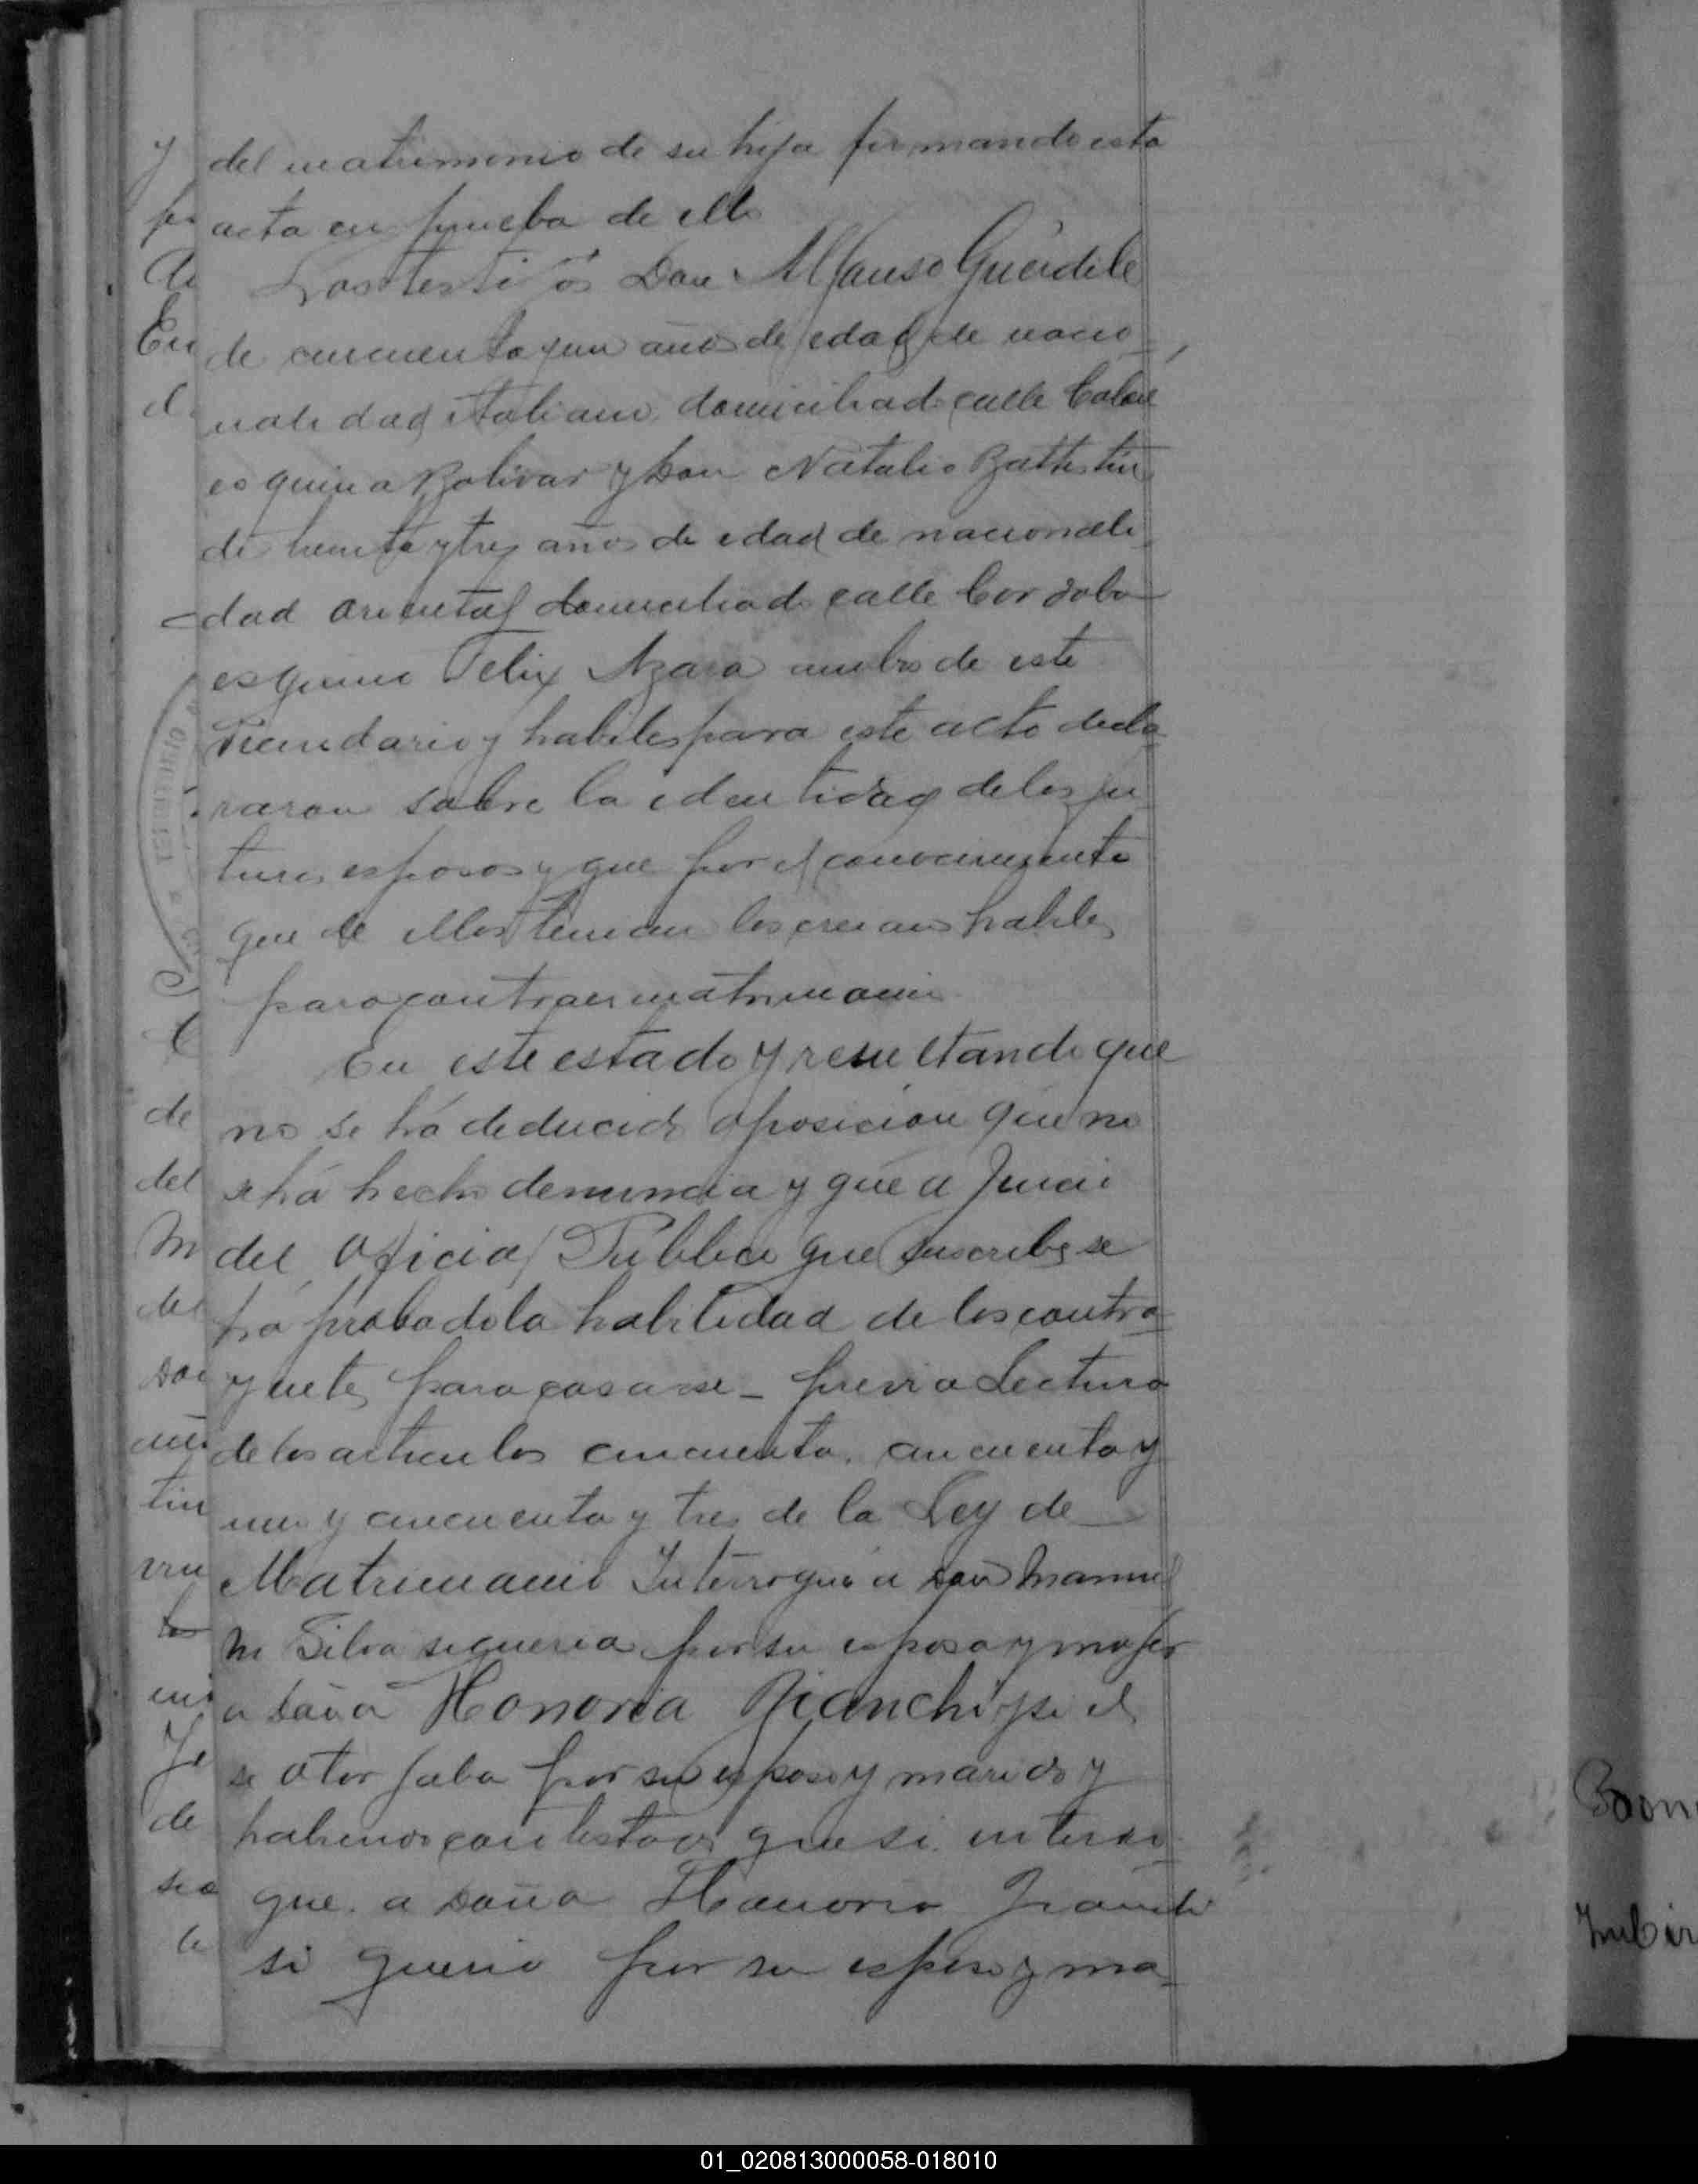 del matrimonio de su hija firmando esta
acta en prueba de ello
Los testigos Don Alfonso Gueidile
de cincuenta y un años de edad de nacio-
nalidad italiano domiciliado calle
esquina Bolivar y Don Natalio Battistin
de treinta y tres años de edad de nacionali-
dad oriental domiciliado calle Cordoba
esquina Felix Azara ambos de este
Vecindario y habiles para este acto decla
raron sobre la identidad de los fu
turos esposos y que por el conocimiento
que de ellos tenian los creian habiles
para contraer matrimonio
En este estado y resultando que
no se há deducido oposicion que no
se há hecho denuncia y que a Juicio
del Oficial Público que suscribe se
há probado la habilidad de los contra-
yentes para casarse - previa Lectura
de los articulos cincuenta, cincuenta y
uno y cincuenta y tres de la Ley de
Matrimonio Interrogué a Don Manuel
M Silva si queria por su esposa y mujer
a Doña Honoria Bianchi y si el
se otorgaba por su esposo y marido y
habiendo contestado que si interro-
gué a Doña Honoria
si queria por su esposo y ma-
01_020813000058-018010